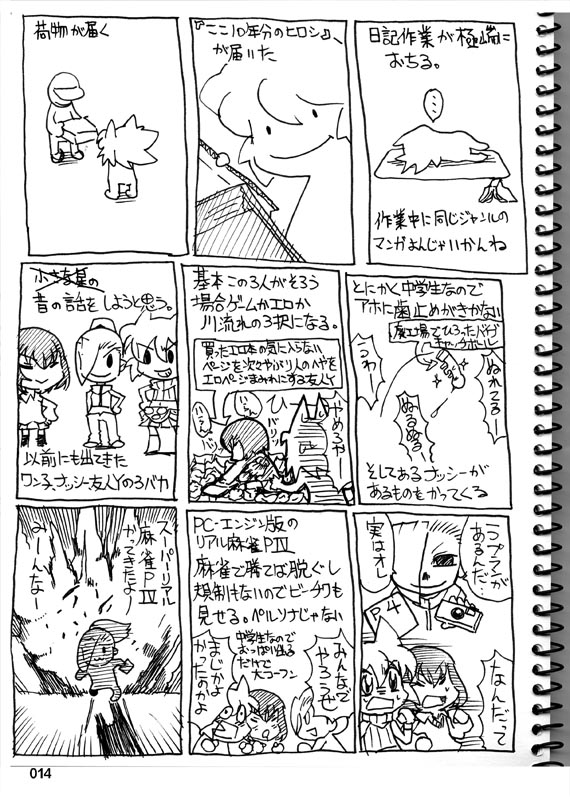 荷物が届く
『ここ10年分のヒロシ』、
が届いた
日記作業が極端に
おちる。
作業中に同じジャンルの
マンガよんじゃいかんね
昔の話をしようと思う。
以前にも出てきた
ワン子、ナッシー、友人Yの3バカ
基本この3人がそろう
場合ゲームかエロか
川流れの3択になる。
買ったエロ本の気に入らない
ページを次々やぶり人のヘやを
エロページまみれにする友人Y
やめろやー
とにかく中学生なので
アホに歯止めがきかない
廃工場でひろったバイブ
ぬれてるー
ぬるぬる
うわー
そしてあるナッシーが
あるものをかってくる
スーパーリアル
麻雀PⅣ
かってきたよ♪
みーんなー
PC-エンジン版の
リアル麻雀PⅣ
麻雀で勝てば脱ぐし
規制もないのでビーチクも
見せる。ペルソナじゃない
みんなで
やろうぜ
中学生なので
おっぱい出る
だけで
大コーフン
まじかよ
かったのかよ
ラプラスが
あるんだ…
実はオレ
P4
なんだって
014